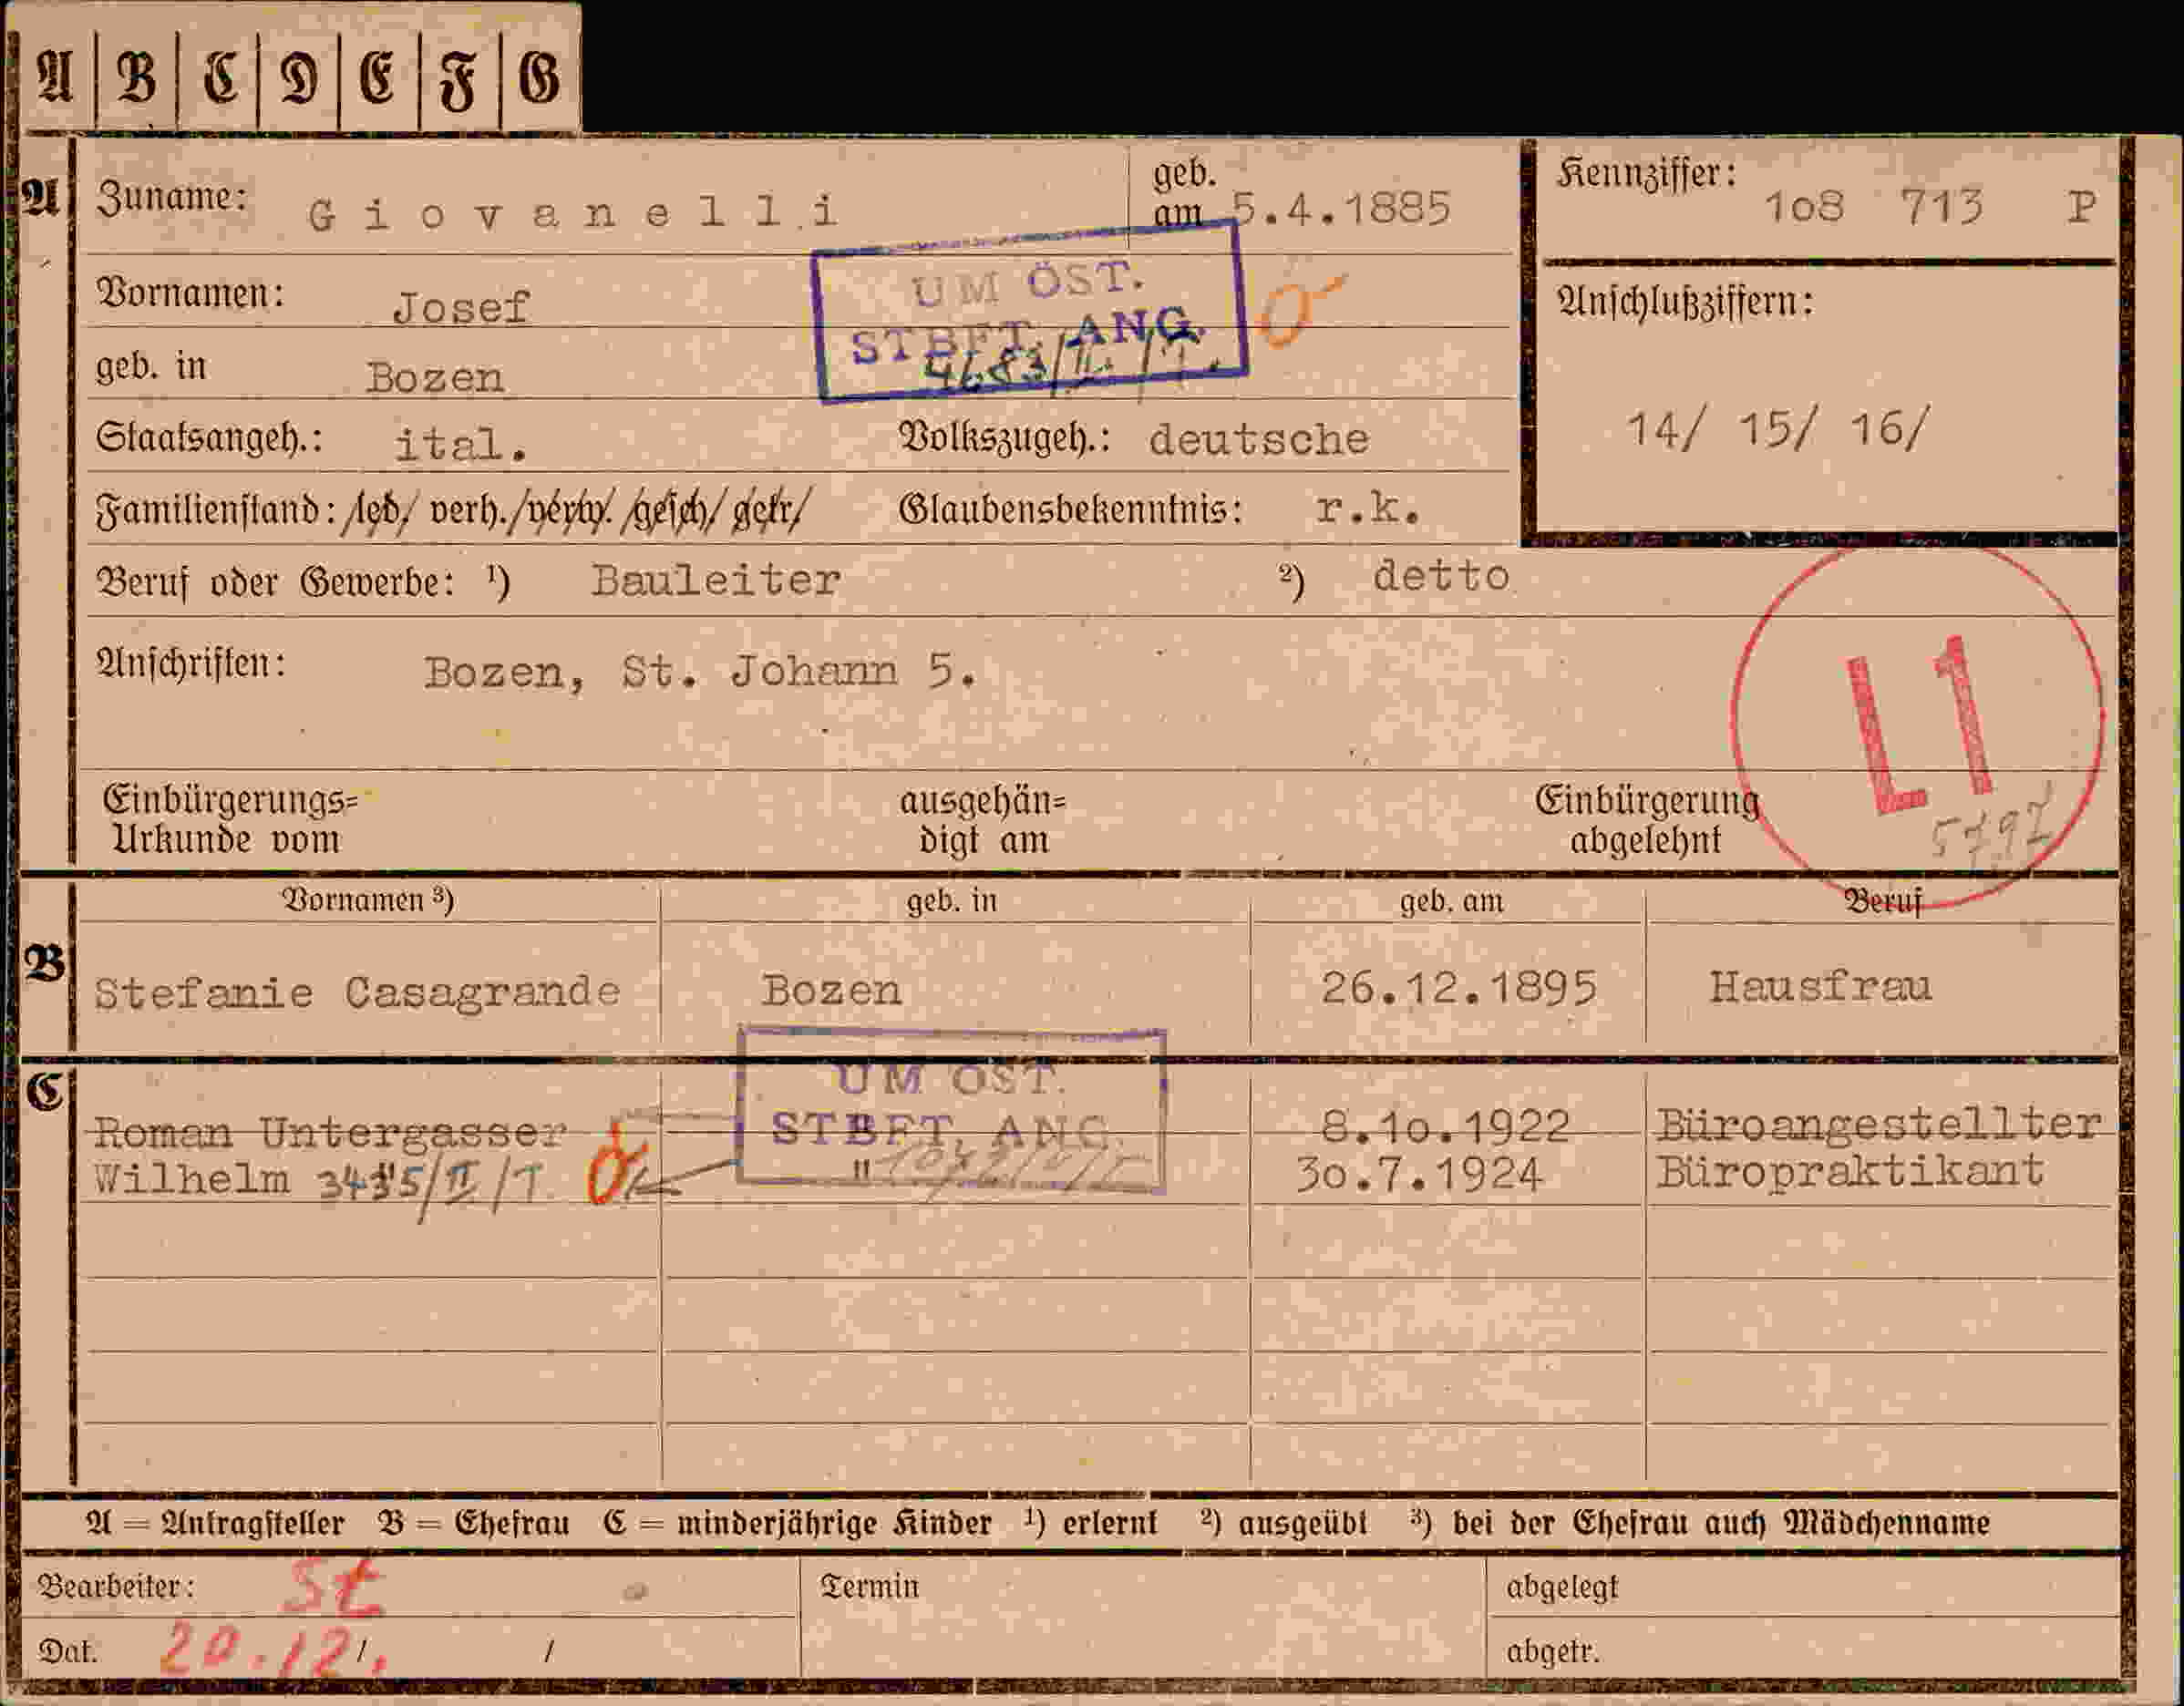 A B C D E F G
A Zuname: Giovanelli geb. am 5.4.1885 Kennziffer: 1o8 713 P
Vornamen: Josef
UM ÖST.
STBFT. ANG.
4683/II.
Anschlußziffern:
14/ 15/ 16/
geb. in Bozen
Staatsangeh.: ital. Volkszugeh.: deutsche
Familienstand: led/ verh./verw. /gesch/ getr/ Glaubensbekenntnis: r.k.
Beruf oder Gewerbe: ¹) Bauleiter ²) detto
Anschriften: Bozen, St. Johann 5.
L1
Einbürgerungs= ausgehän= Einbürgerung
Urkunde vom digt am abgelehnt
Vornamen ³) geb. in geb. am Beruf
B Stefanie Casagrande Bozen 26.12.1895 Hausfrau
C
UM ÖST.
STBFT. ANG.
Roman Untergasser " 8.1o.1922 Büroangestellter
Wilhelm /II/T. " 3o.7.1924 Büropraktikant
A = Antragsteller B = Ehefrau C = minderjährige Kinder ¹) erlernt ²) ausgeübt ³) bei der Ehefrau auch Mädchenname
Bearbeiter: St Termin abgelegt
Dat. 20.12. / / abgetr.